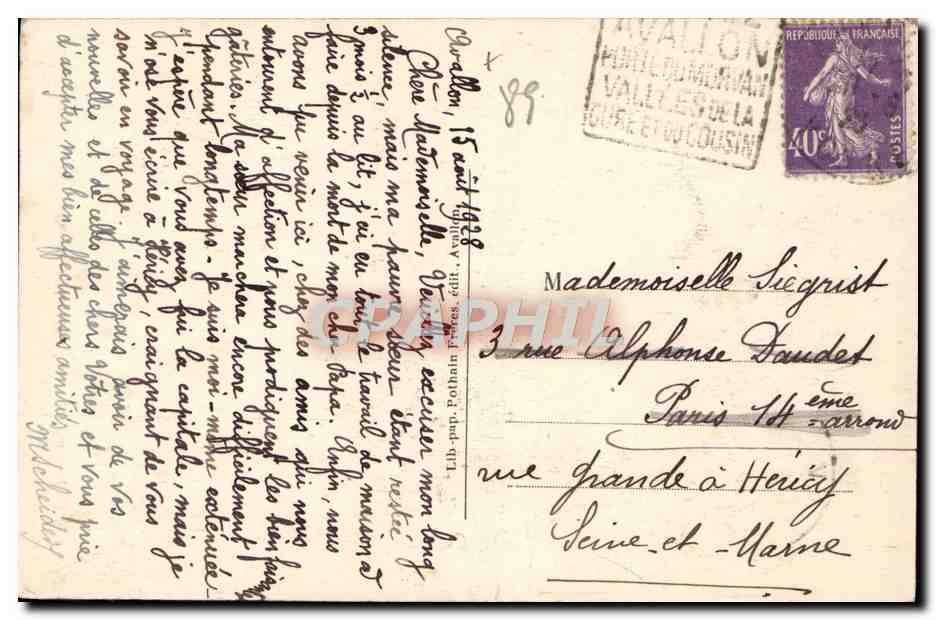 Avallon, 15 août 1928
Chère Mademoiselle, Veuillez excuser mon long
silence, mais ma pauvre sœur étant restée
3 mois ½ au lit, j'ai eu tout le travail de maison à
faire depuis la mort de mon cher Papa. Enfin, nous
avons pu venir ici, chez des amis qui nous
entourent d'affection et nous prodiguent les bienfaisantes
gâteries. Ma sœur marchera encore difficilement
pendant longtemps. Je suis moi-même exténuée
J'espère que vous avez fui la capitale, mais je
n'ose vous écrire à Héricy, craignant de vous
savoir en voyage. J'aimerais avoir de vos
nouvelles et de celles des chers Vôtres et vous prie
d'accepter mes bien affectueuses amitiés
MScheidig
+
89
Lib. pap. Pothain Frères, édit., Avallon
AVALLON
PORTE DU MORVAN
VALLÉES DE LA
CURE ET DU COUSIN
REPUBLIQUE FRANÇAISE
40c
POSTES
CPAPHIL
Mademoiselle Siegrist
3 rue Alphonse Daudet
Paris 14ème arrond
rue Grande à Héricy
Seine-et-Marne